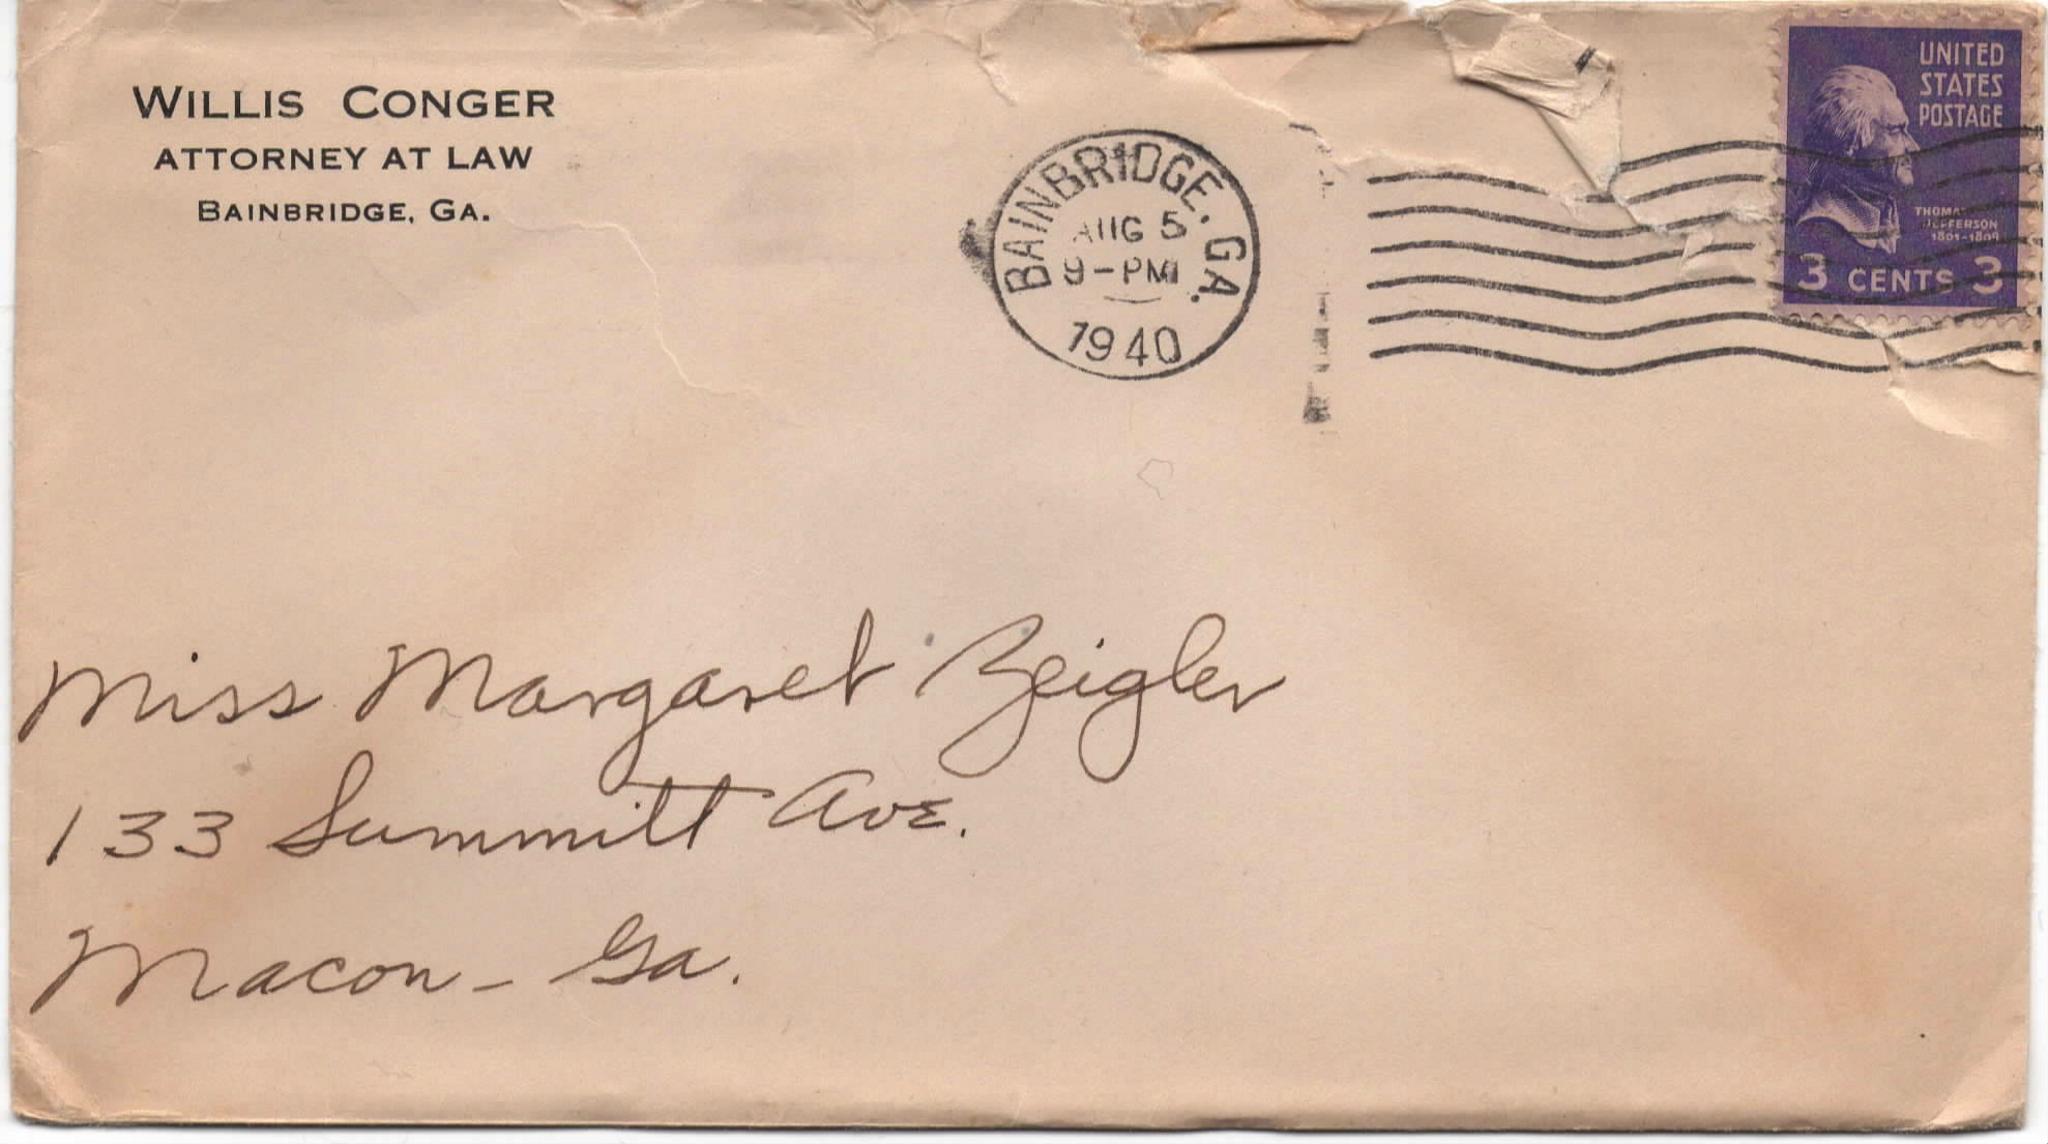 WILLIS CONGER
ATTORNEY AT LAW
BAINBRIDGE, GA.
BAINBRIDGE, GA.
AUG 5
9-PM
1940
UNITED
STATES
POSTAGE
THOMAS
JEFFERSON
1801-1809
3 CENTS 3
Miss Margaret Zeigler
133 Summitt Ave.
Macon - Ga.